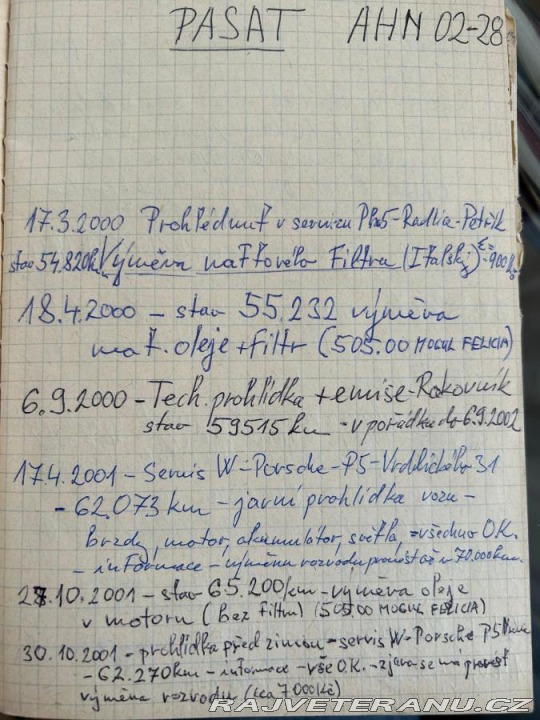 PASAT AHN 02-28
17.3.2000 Prohlédnut v servizu Pha5-Radlia-Petřík
stav 54.820km Výměva naftového Filtru (Italský) =900Kč
18.4.2000 - stav 55.232 výměva
mot. oleje + filtr (505.00 MOGUL FELICIA)
6.9.2000 - Tech. prohlídka + emise - Rakovník
stav 59515 km - v pořádku do 6.9.2002
17.4.2001 - Servis W-Porsche-P5-Vrchlického 31
- 62.073 km - jarní prohlídka vozu -
brzdy, motor, akumulátor, světla, = všechno O.K.
- informace - výměnu rozvodu provést až v 70.000km.
27.10.2001 - stav 65.200 km - výměva oleje
v motoru (bez filtru) (505.00 MOGUL FELICIA)
30.10.2001 - prohlídka před zimou - servis W-Porsche P5
- 62.270 km - informace - vše O.K. - zjara se má provést
výměna rozvodu (cca 7000Kč)
RAJVETERANU.CZ